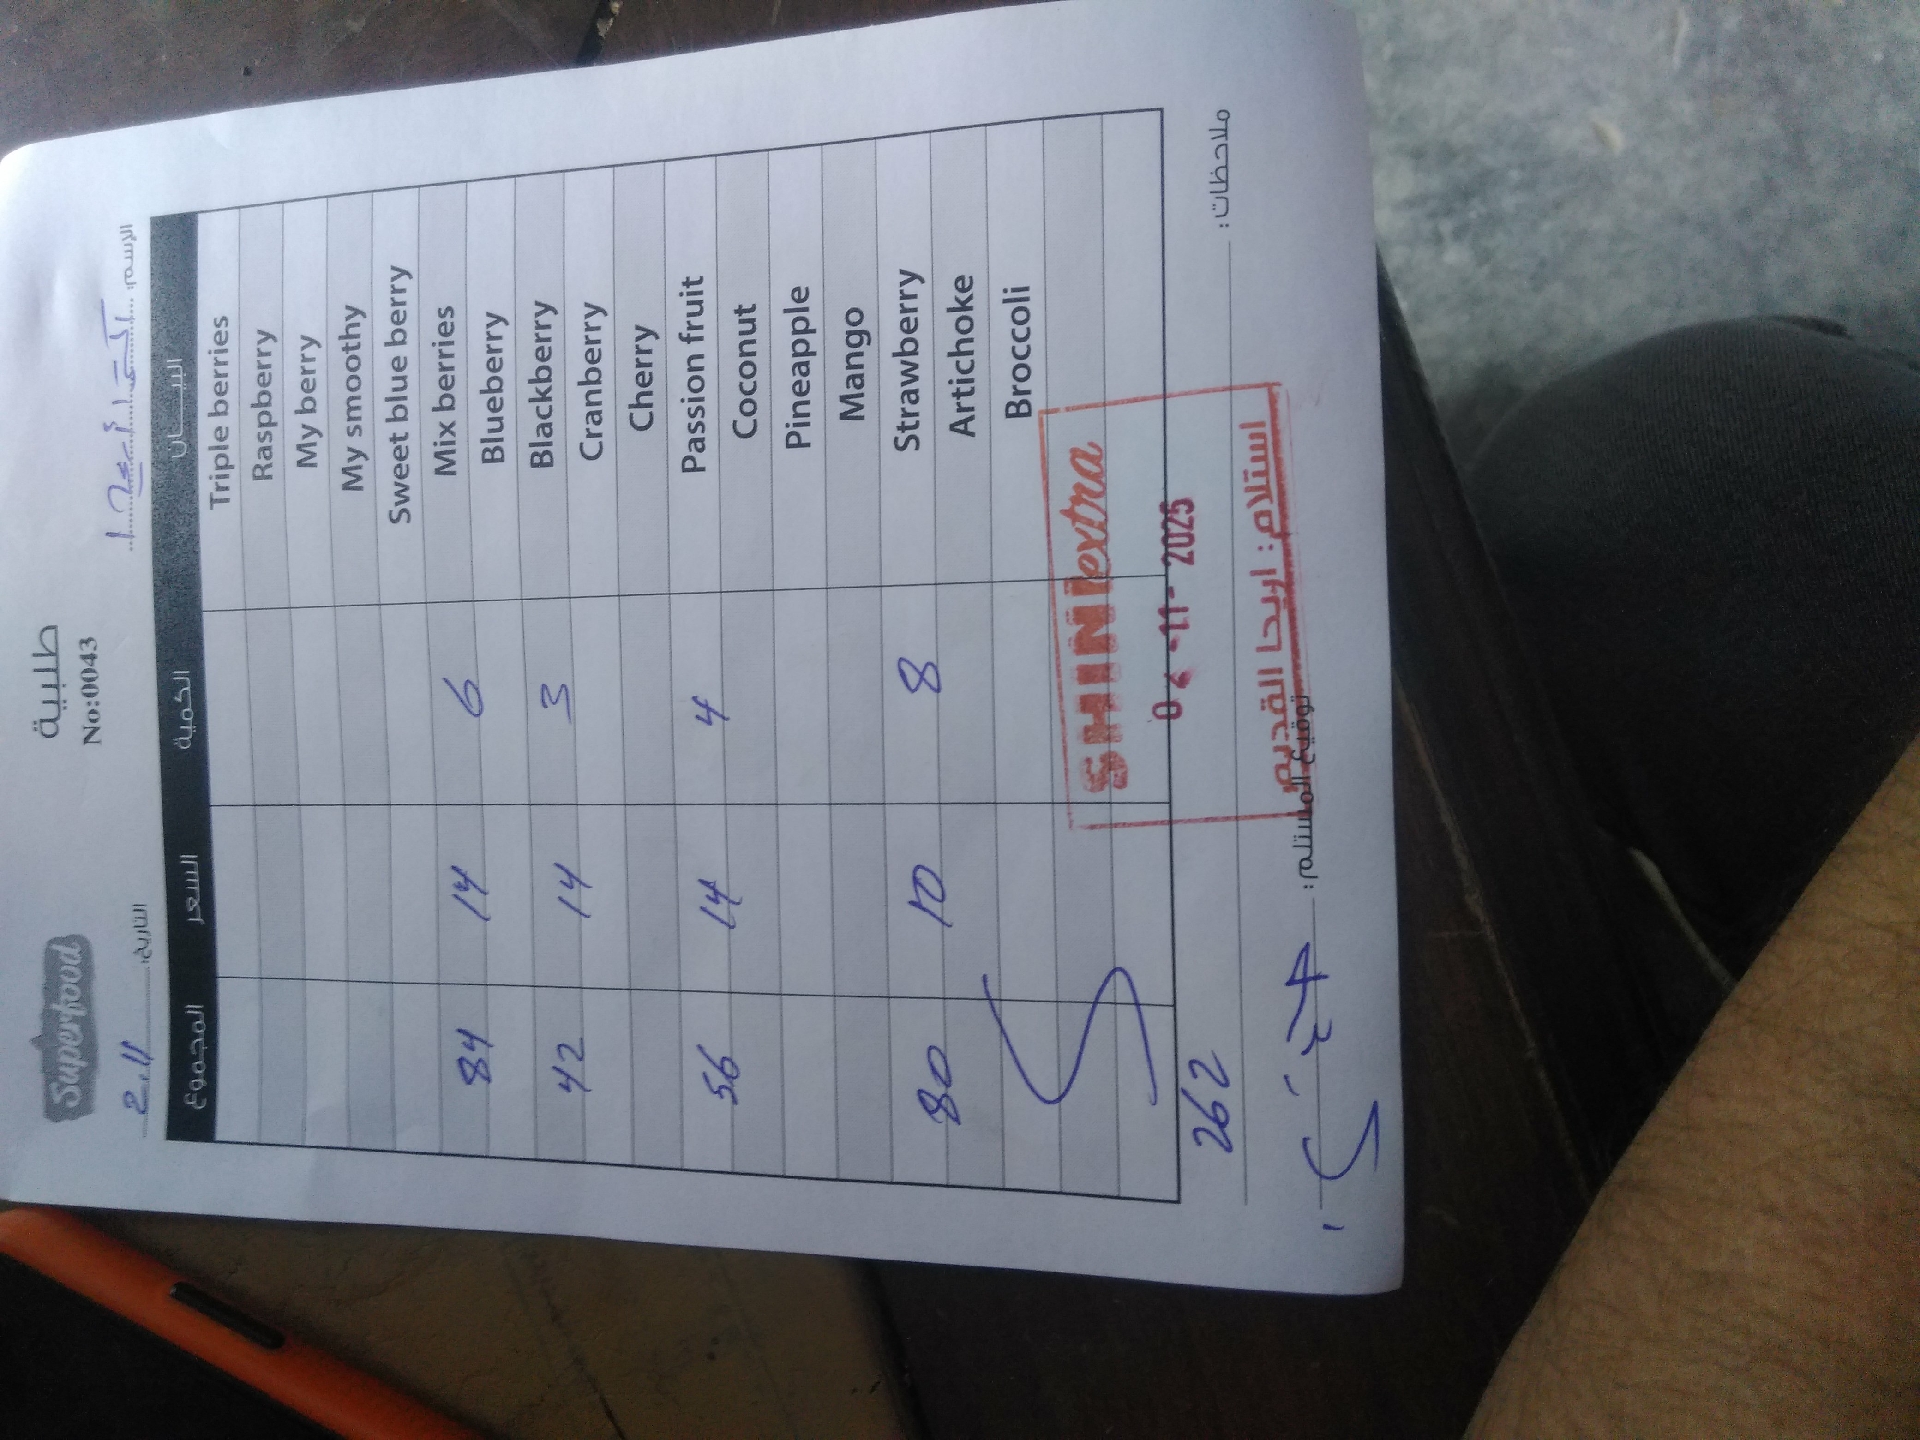 Superfood
طلبية
No:0043
الإسم:
التاريخ: 2.11
البيـــان الكمية السعر المجموع
Triple berries
Raspberry
My berry
My smoothy
Sweet blue berry
Mix berries 6 14 84
Blueberry
Blackberry 3 14 42
Cranberry
Cherry
Passion fruit 4 14 56
Coconut
Pineapple
Mango
Strawberry 8 10 80
Artichoke
Broccoli
SHINI extra
-11- 2025
استلام: اريحا القديم
ملاحظات: 262
توقيع المستلم: